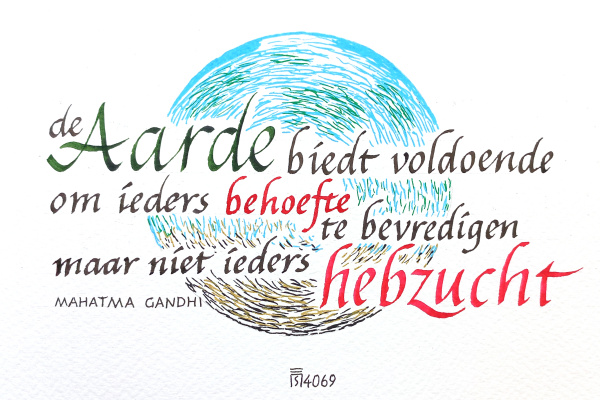 de Aarde biedt voldoende
om ieders behoefte
te bevredigen
maar niet ieders hebzucht
MAHATMA GANDHI
4069